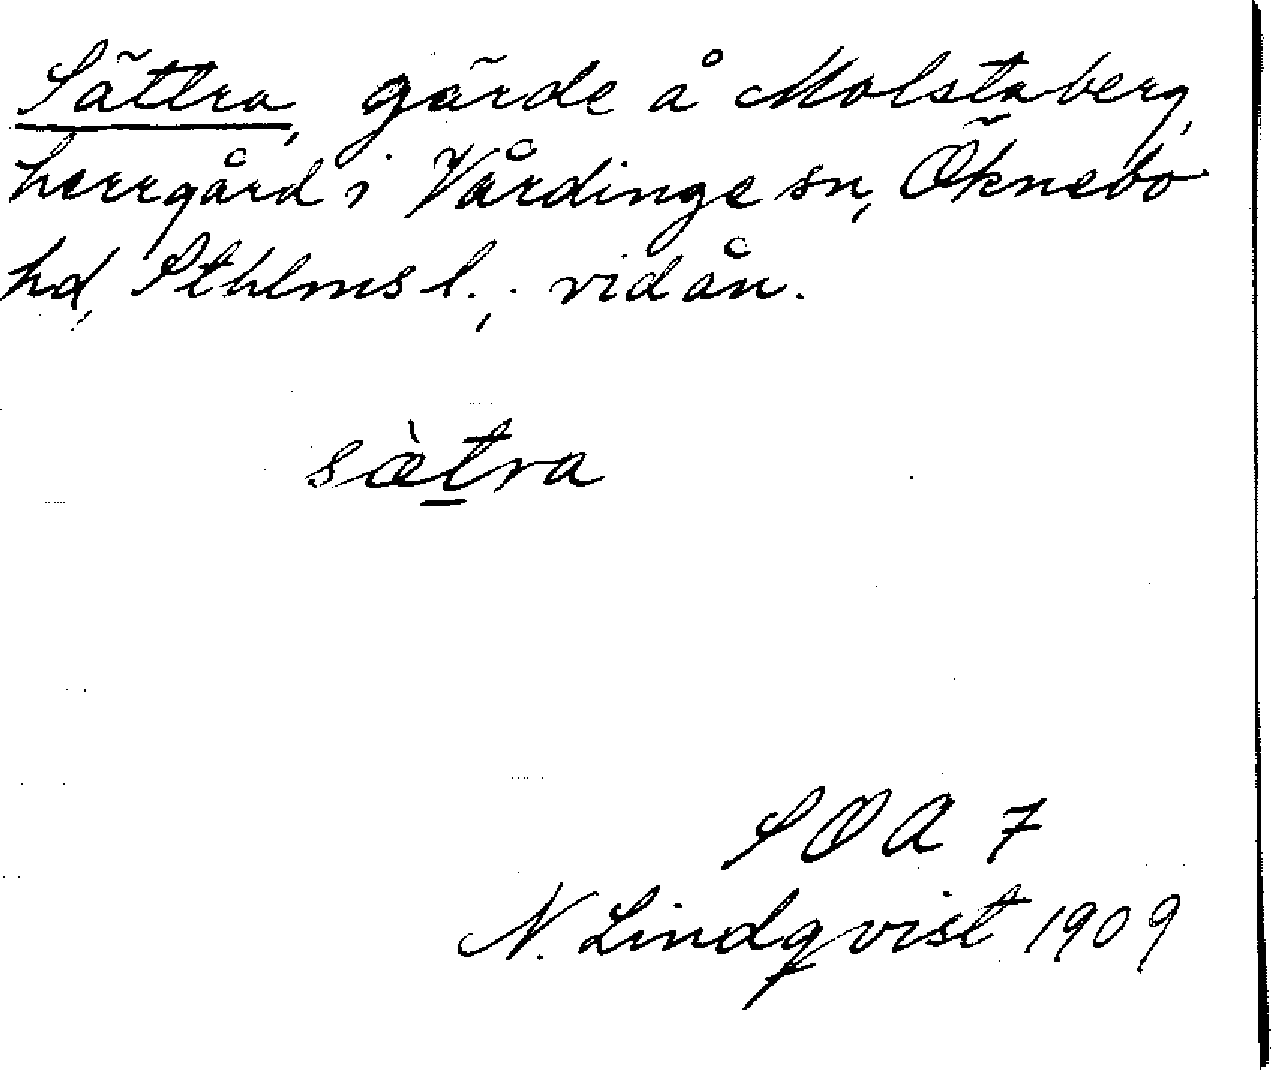 Sättra, gärde å Molstaberg,
herrgård i Vårdinge sn, Öknebo
hd, Sthlms l., vid ån.
sæ̀tra
SOA 7
N. Lindqvist 1909